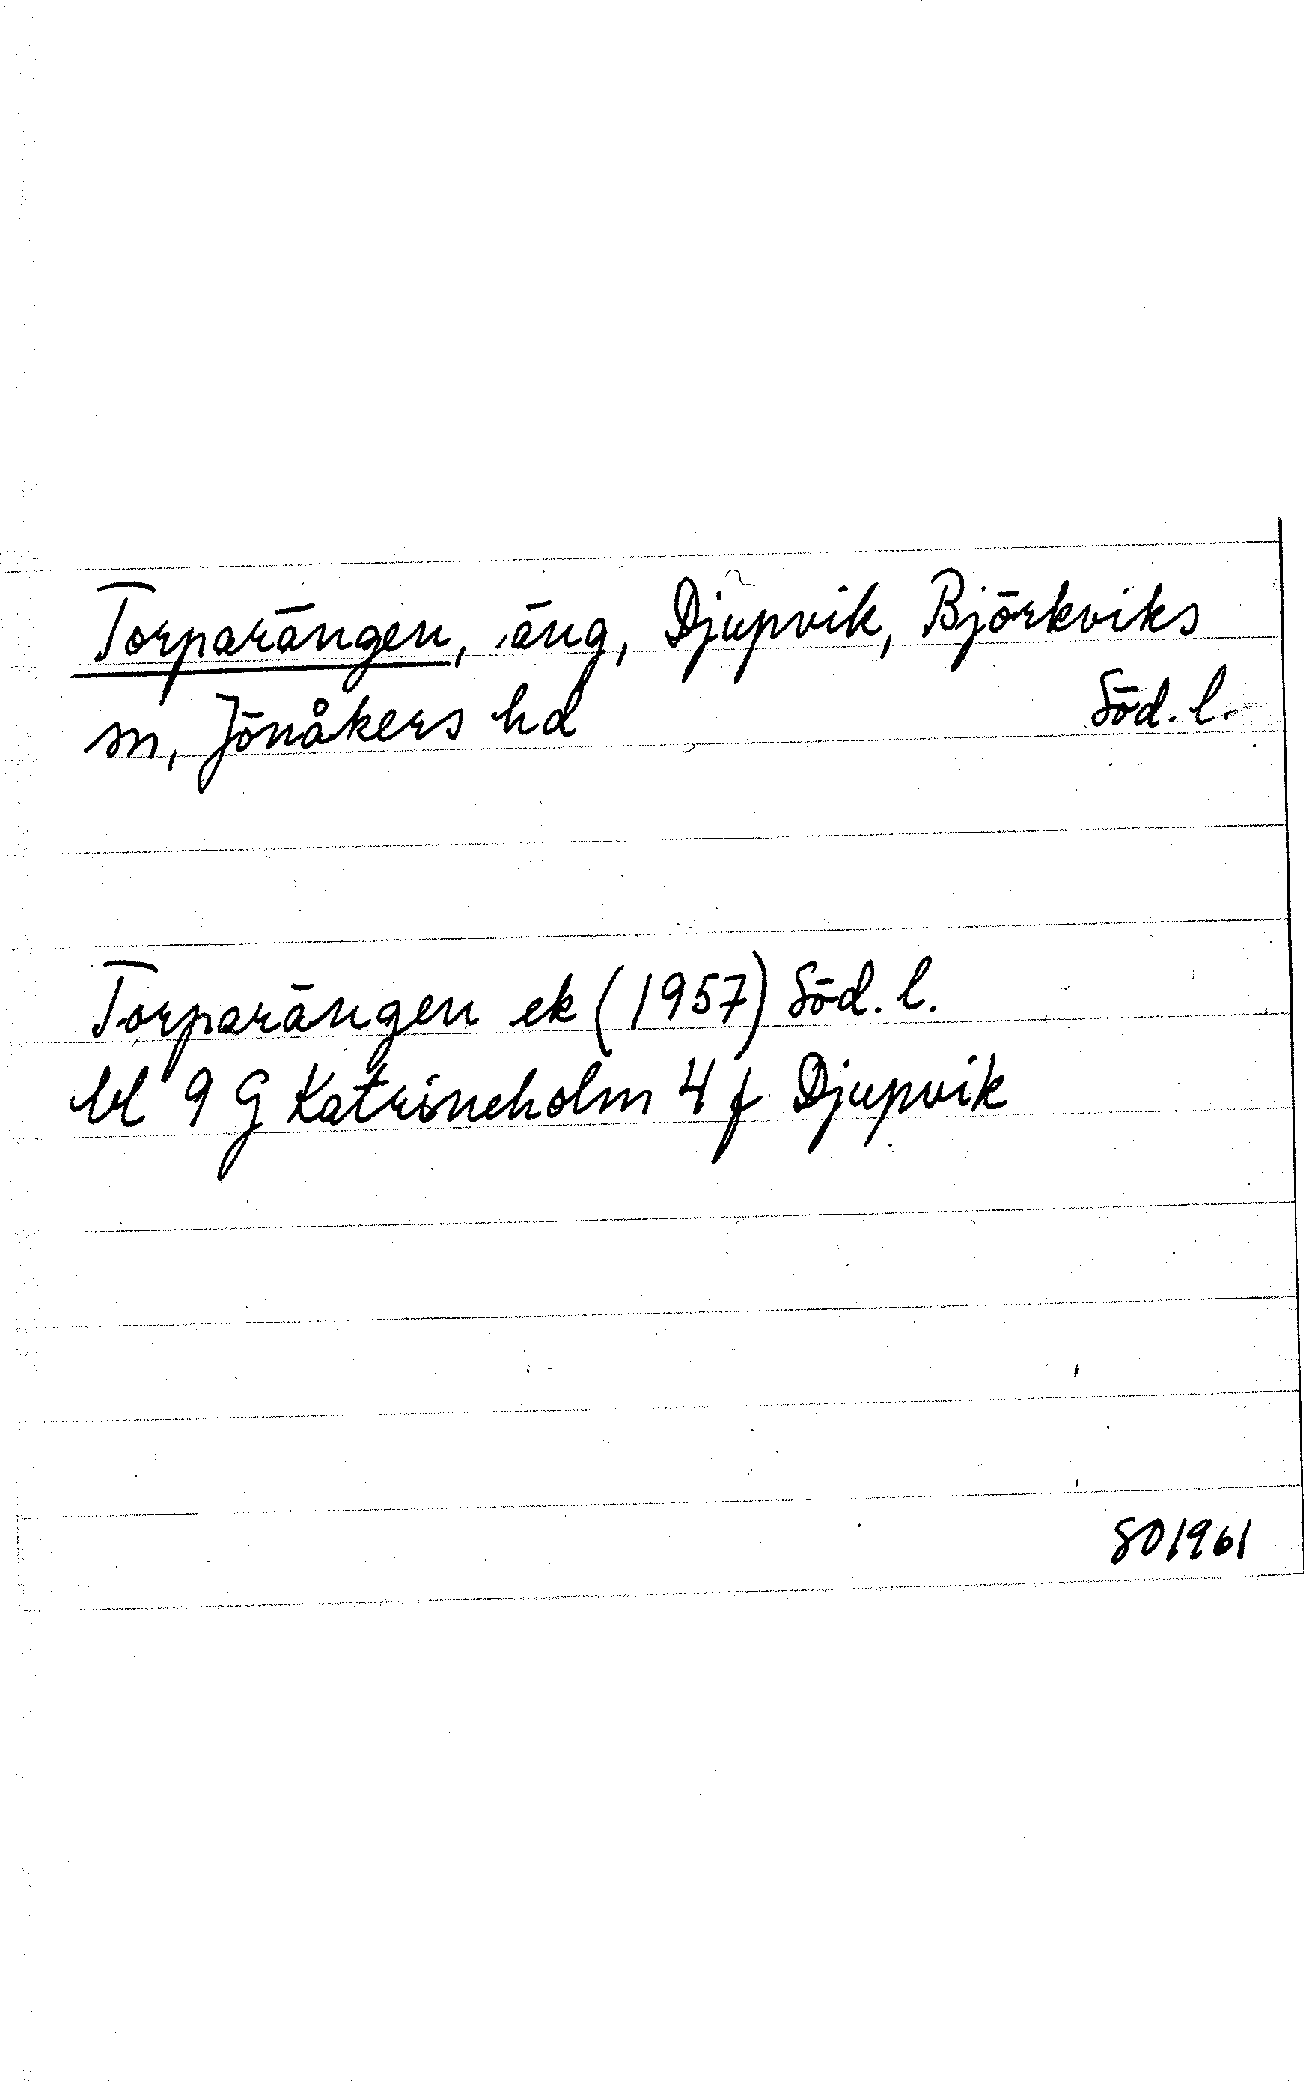 Torparängen, äng, Djupvik, Björkviks
sn, Jönåkers hd Söd. l.
Torparängen ek (1957) Söd. l.
bl 9 G Katrineholm 4 f Djupvik
801961